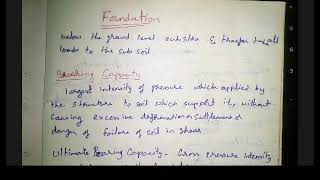 Foundation
below the ground level substra & transfer all
loads to the sub soil
Bearing Capacity
largest intensity of pressure which applied by
the structure to soil which support it, without
causing excessive deformation or settlement or
danger of failure of soil in shear
Ultimate Bearing Capacity - Gross Pressure Intensity